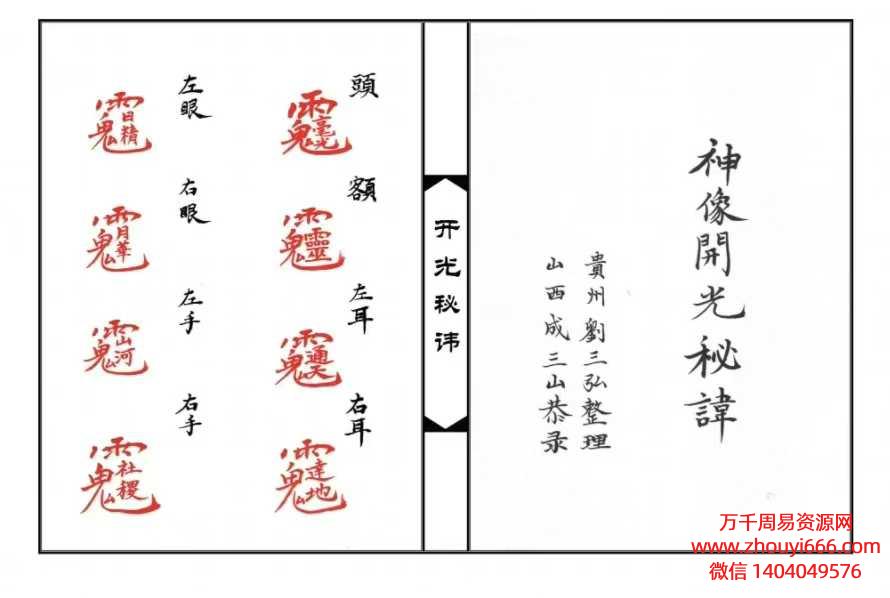 神像開光秘諱
貴州劉三弘整理
山西成三山恭录
开光秘讳
頭
毫光
額
靈
左耳
通天
右耳
達地
左眼
日精
右眼
月華
左手
山河
右手
社稷
万千周易资源网
www.zhouyi666.com
微信 1404049576